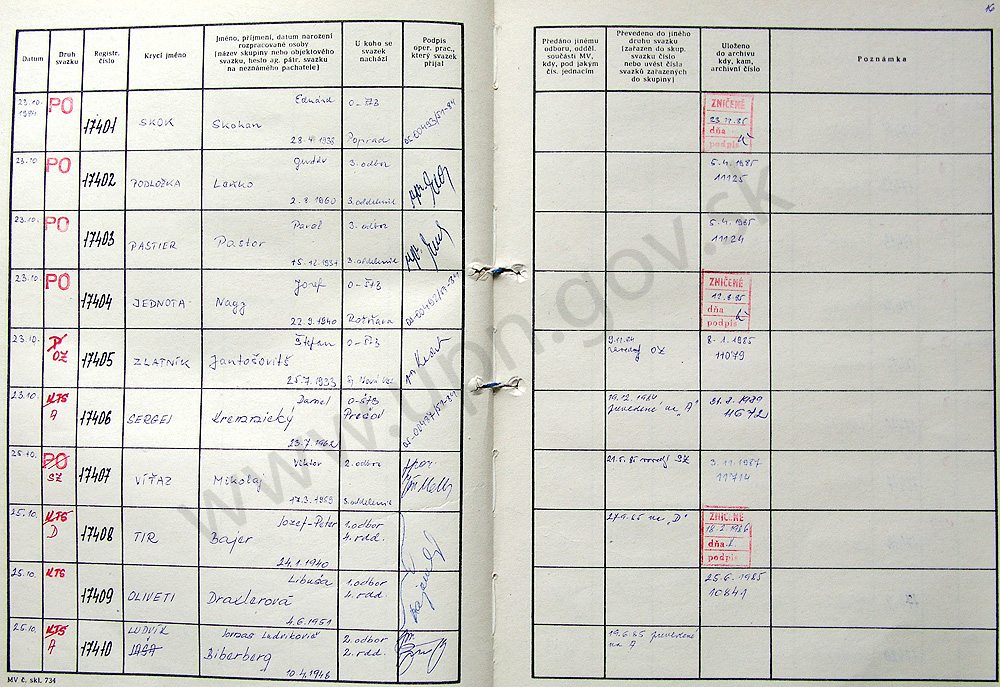 16
Datum
Druh svazku
Registr. číslo
Krycí jméno
Jméno, příjmení, datum narození rozpracované osoby (název skupiny nebo objektového svazku, heslo ag. pátr. svazku na neznámého pachatele)
U koho se svazek nachází
Podpis oper. prac., který svazek přijal
Předáno jinému odboru, odděl. součásti MV, kdy, pod jakým čís. jednacím
Převedeno do jiného druhu svazku (zařazen do skup. svazku číslo nebo uvést čísla svazků zařazených do skupiny)
Uloženo do archivu kdy, kam, archivní číslo
Poznámka
23.10. 1984 PO 17401 SKOK Eduárd Skokan 0-ŠtB Poprad
ZNIČENÉ
dňa
podpis
23.10 PO 17402 PODLOŽKA 2.8.1960 3. odbor 3. oddelenie
5.4.1985
11125
23.10. PO 17403 PASTIER Pavol Pastor 15.12.1931 3. odbor 3. oddelenie
5.4.1985
11124
23.10. PO 17404 JEDNOTA Jozef Nagy 22.9.1940 0-ŠtB Rožňava
ZNIČENÉ
dňa
podpis
23.10. OZ 17405 ZLATNÍK Štefan Jantošovitš 25.7.1933 0-ŠtB
OZ
8.1.1985
11079
23.10. KTS A 17406 SERGEJ Daniel Kremnický 23.7.1962 0-ŠtB Prešov
19.12.1984 prevedené na "A"
11672
25.10. PO SZ 17407 VÍŤAZ Viktor Mikolaj 17.3.1959 2. odbor 3. oddelenie
SZ
3.11.1987
11714
25.10. KTS D 17408 TIR Jozef-Peter Bajer 24.1.1940 1. odbor 4. rdd.
na "D"
ZNIČENÉ
18.2.1986
dňa
podpis
25.10. KTS 17409 OLIVETI Libuša Draxlerová 4.6.1951 1. odbor 4. rdd
25.6.1985
10841
25.10. KTS A 17410 LUDVÍK JAŠA Ludvikovič Biberberg 10.4.1946 2. odbor 2. rdd.
19.6.85 prevedené na A
MV č. skl. 734
www.upn.gov.sk